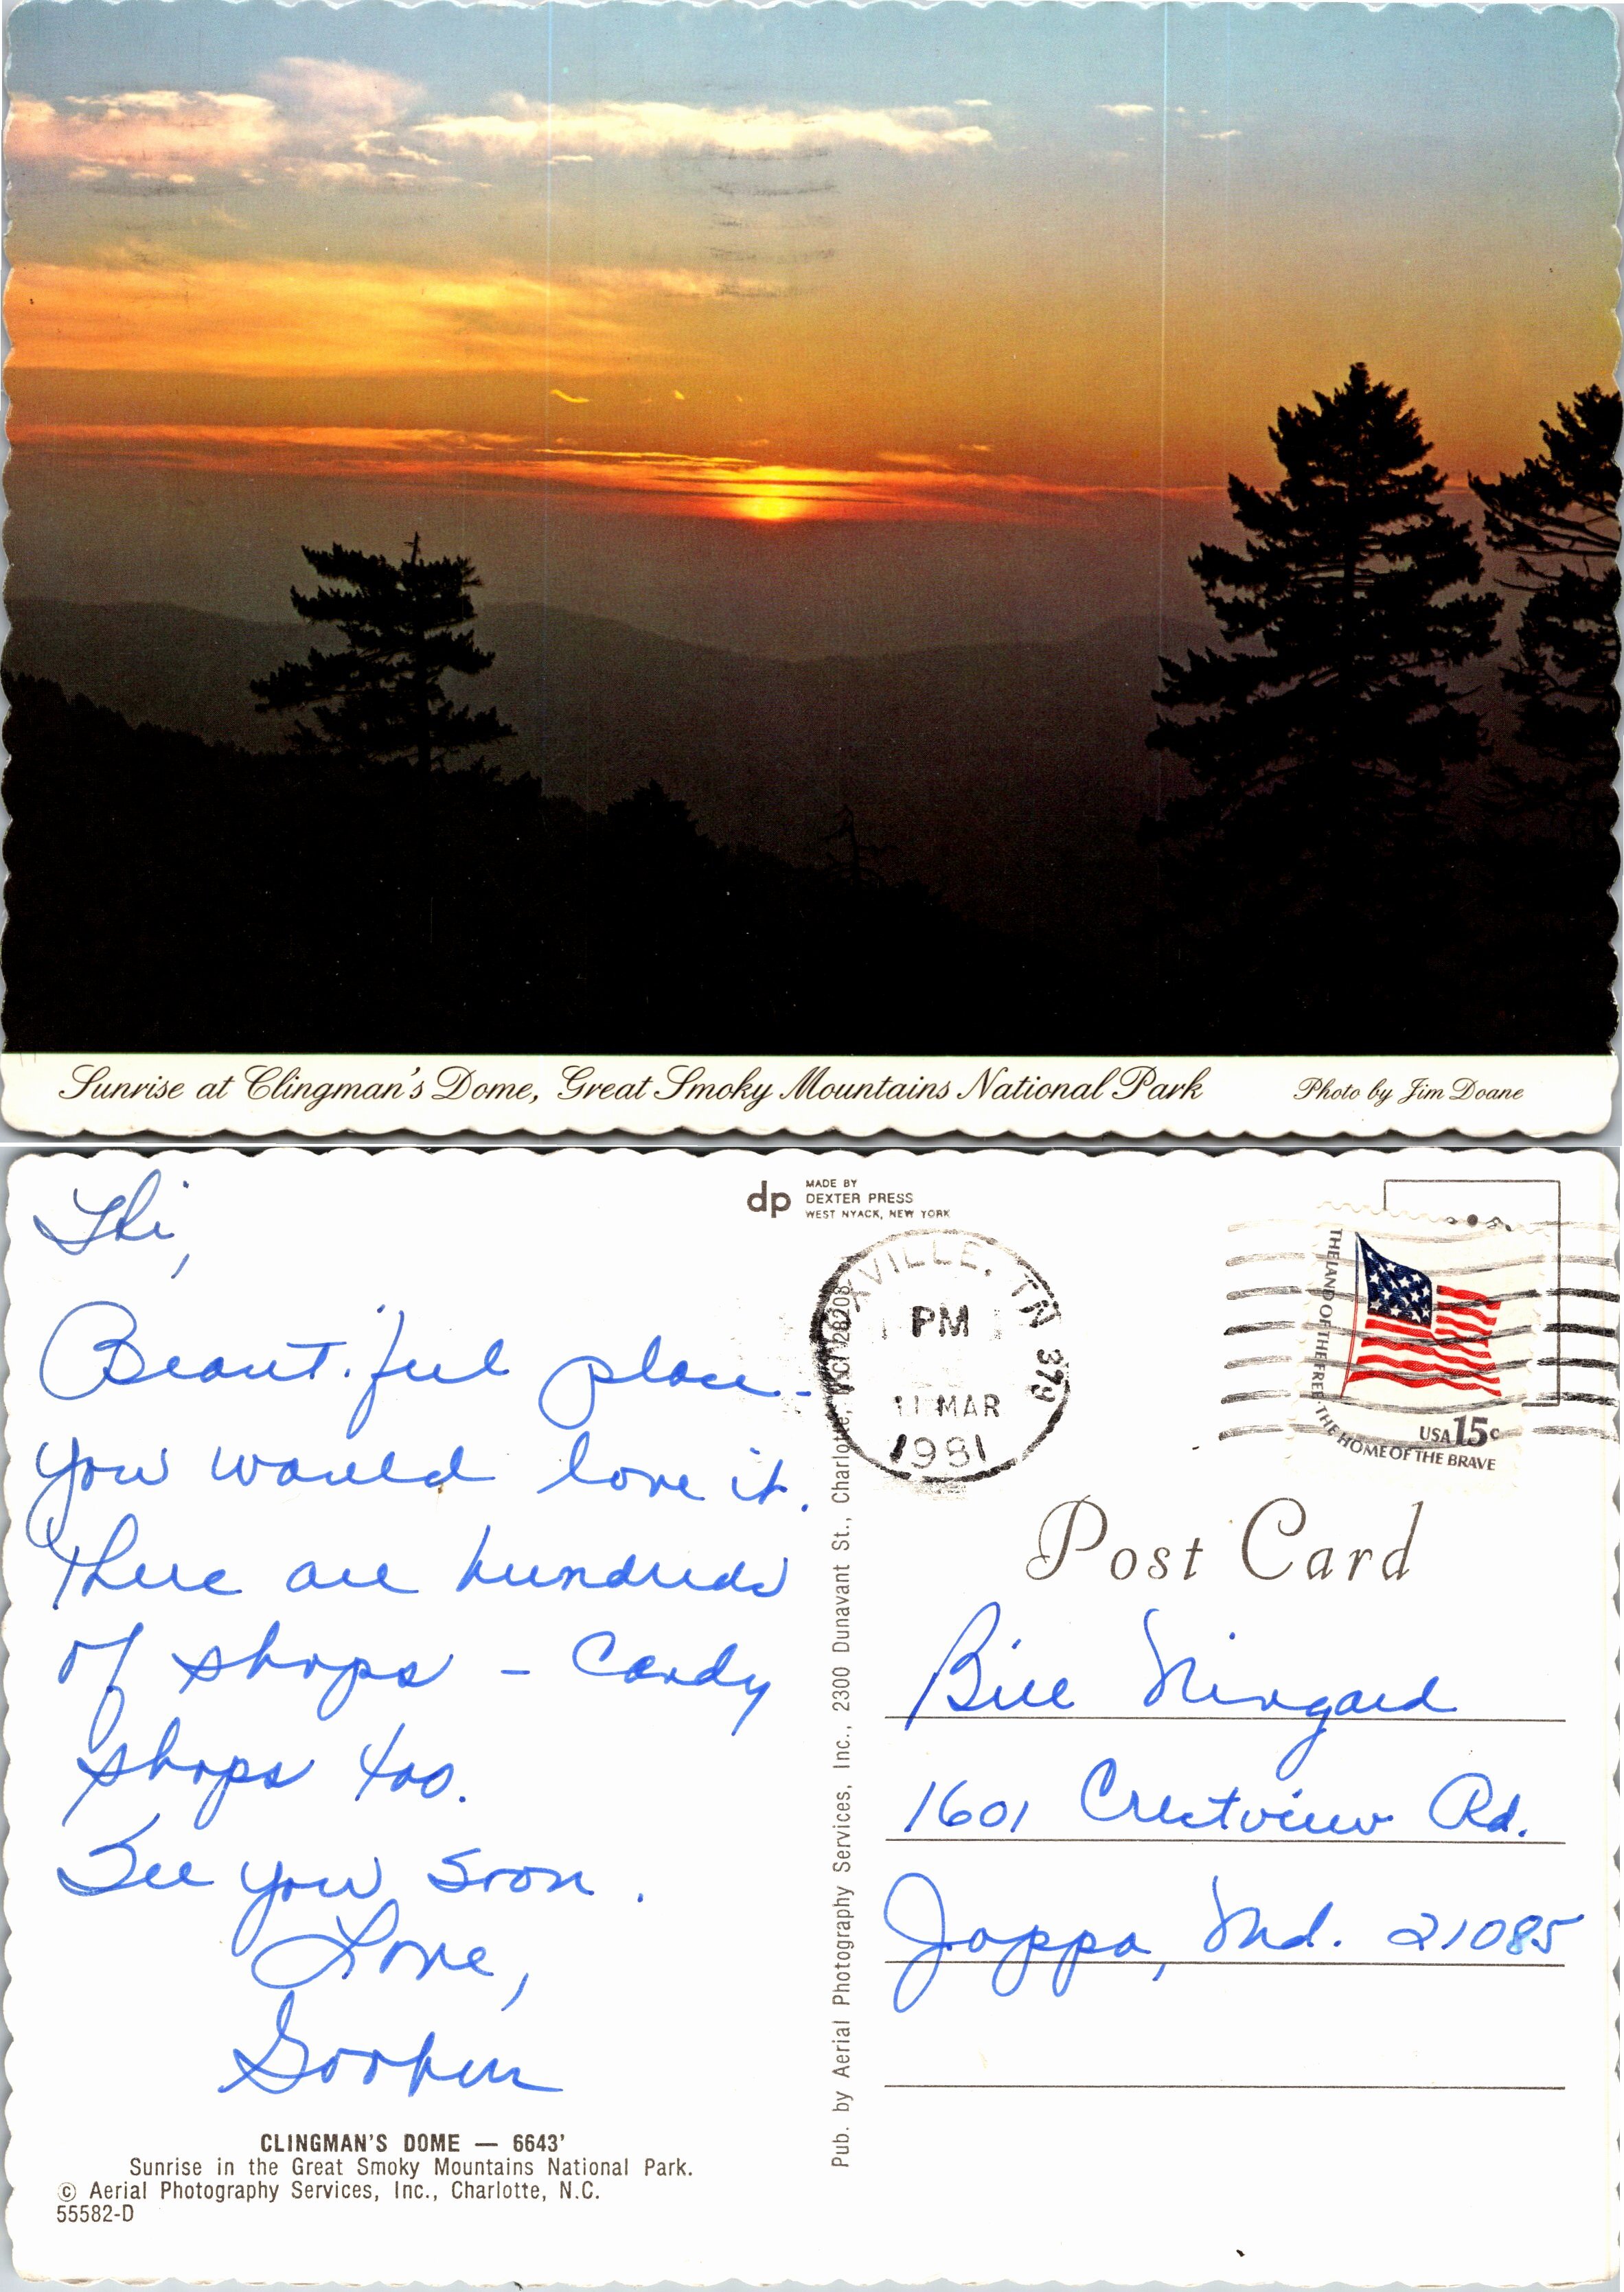 Sunrise at Clingman's Dome, Great Smoky Mountains National Park
Photo by Jim Doane
Hi,
Beautiful place -
you would love it.
There are hundreds
of shops - Candy
shops too.
See you soon.
Love,
CLINGMAN'S DOME — 6643'
Sunrise in the Great Smoky Mountains National Park.
© Aerial Photography Services, Inc., Charlotte, N.C.
55582-D
dp
MADE BY
DEXTER PRESS
WEST NYACK, NEW YORK
Pub. by Aerial Photography Services, Inc., 2300 Dunavant St., Charlotte, 28208
XVILLE, TN 379
PM
11 MAR
1981
THE LAND OF THE FREE · THE HOME OF THE BRAVE
USA 15c
Post Card
Bill
1601 Crestview Rd.
Joppa, Md. 21085